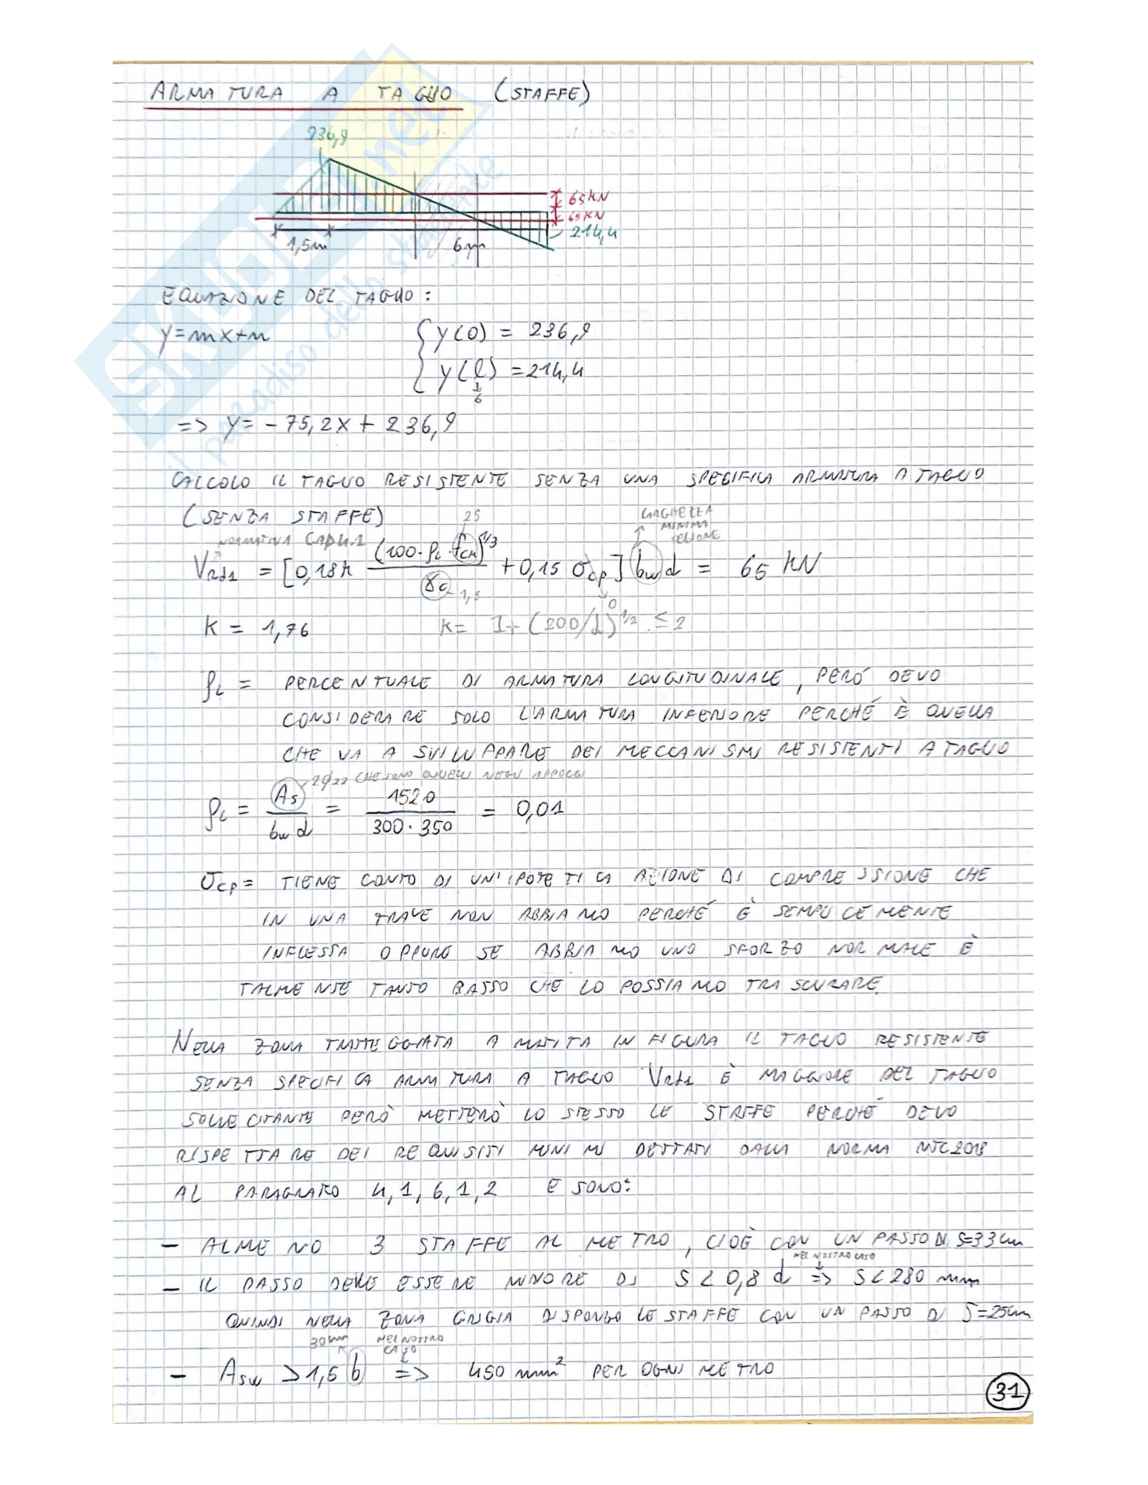 ARMATURA A TAGLIO (STAFFE)
236,9
65 KN
65 KN
214,4
1,5m
6m
EQUAZIONE DEL TAGLIO:
y=mx+n
y(0) = 236,9
y(l) = 214,4
6
=> y= - 75,2x + 236,9
CALCOLO IL TAGLIO RESISTENTE SENZA UNA SPECIFICA ARMATURA A TAGLIO
(SENZA STAFFE)
25
LARGHEZZA MINIMA SEZIONE
NORMATIVA
VRd1 = [0,18k (100·ρL·fck)^1/3 / γc + 0,15 σcp] bw d = 65 KN
1,5
0
K = 1,76 K= 1+(200/d)^1/2 ≤ 2
ρL = PERCENTUALE DI ARMATURA LONGITUDINALE, PERÒ DEVO
CONSIDERARE SOLO L'ARMATURA INFERIORE PERCHÉ È QUELLA
CHE VA A SVILUPPARE DEI MECCANISMI RESISTENTI A TAGLIO
CHE SONO QUELLI NEGLI APPOGGI
ρL = As / bw d = 1520 / 300·350 = 0,01
σcp = TIENE CONTO DI UN'IPOTETICA AZIONE DI COMPRESSIONE CHE
IN UNA TRAVE NON ABBIAMO PERCHÉ È SEMPLICEMENTE
INFLESSA OPPURE SE ABBIAMO UNO SFORZO NORMALE È
TALMENTE TANTO BASSO CHE LO POSSIAMO TRASCURARE.
NELLA ZONA TRATTEGGIATA A MATITA IN FIGURA IL TAGLIO RESISTENTE
SENZA SPECIFICA ARMATURA A TAGLIO VRd1 È MAGGIORE DEL TAGLIO
SOLLECITANTE PERÒ METTERÒ LO STESSO LE STAFFE PERCHÉ DEVO
RISPETTARE DEI REQUISITI MINIMI DETTATI DALLA NORMA NTC2018
AL PARAGRAFO 4,1,6,1,2 E SONO:
- ALMENO 3 STAFFE AL METRO, CIOÈ CON UN PASSO DI S=33cm
NEL NOSTRO CASO
- IL PASSO DEVE ESSERE MINORE DI S<0,8 d => S<280 mm
QUINDI NELLA ZONA GRIGIA DISPONGO LE STAFFE CON UN PASSO DI S=25cm
NEL NOSTRO CASO
- Asw >1,5 b => 450 mm² PER OGNI METRO
31
SKUOLA.net
il paradiso dello studente